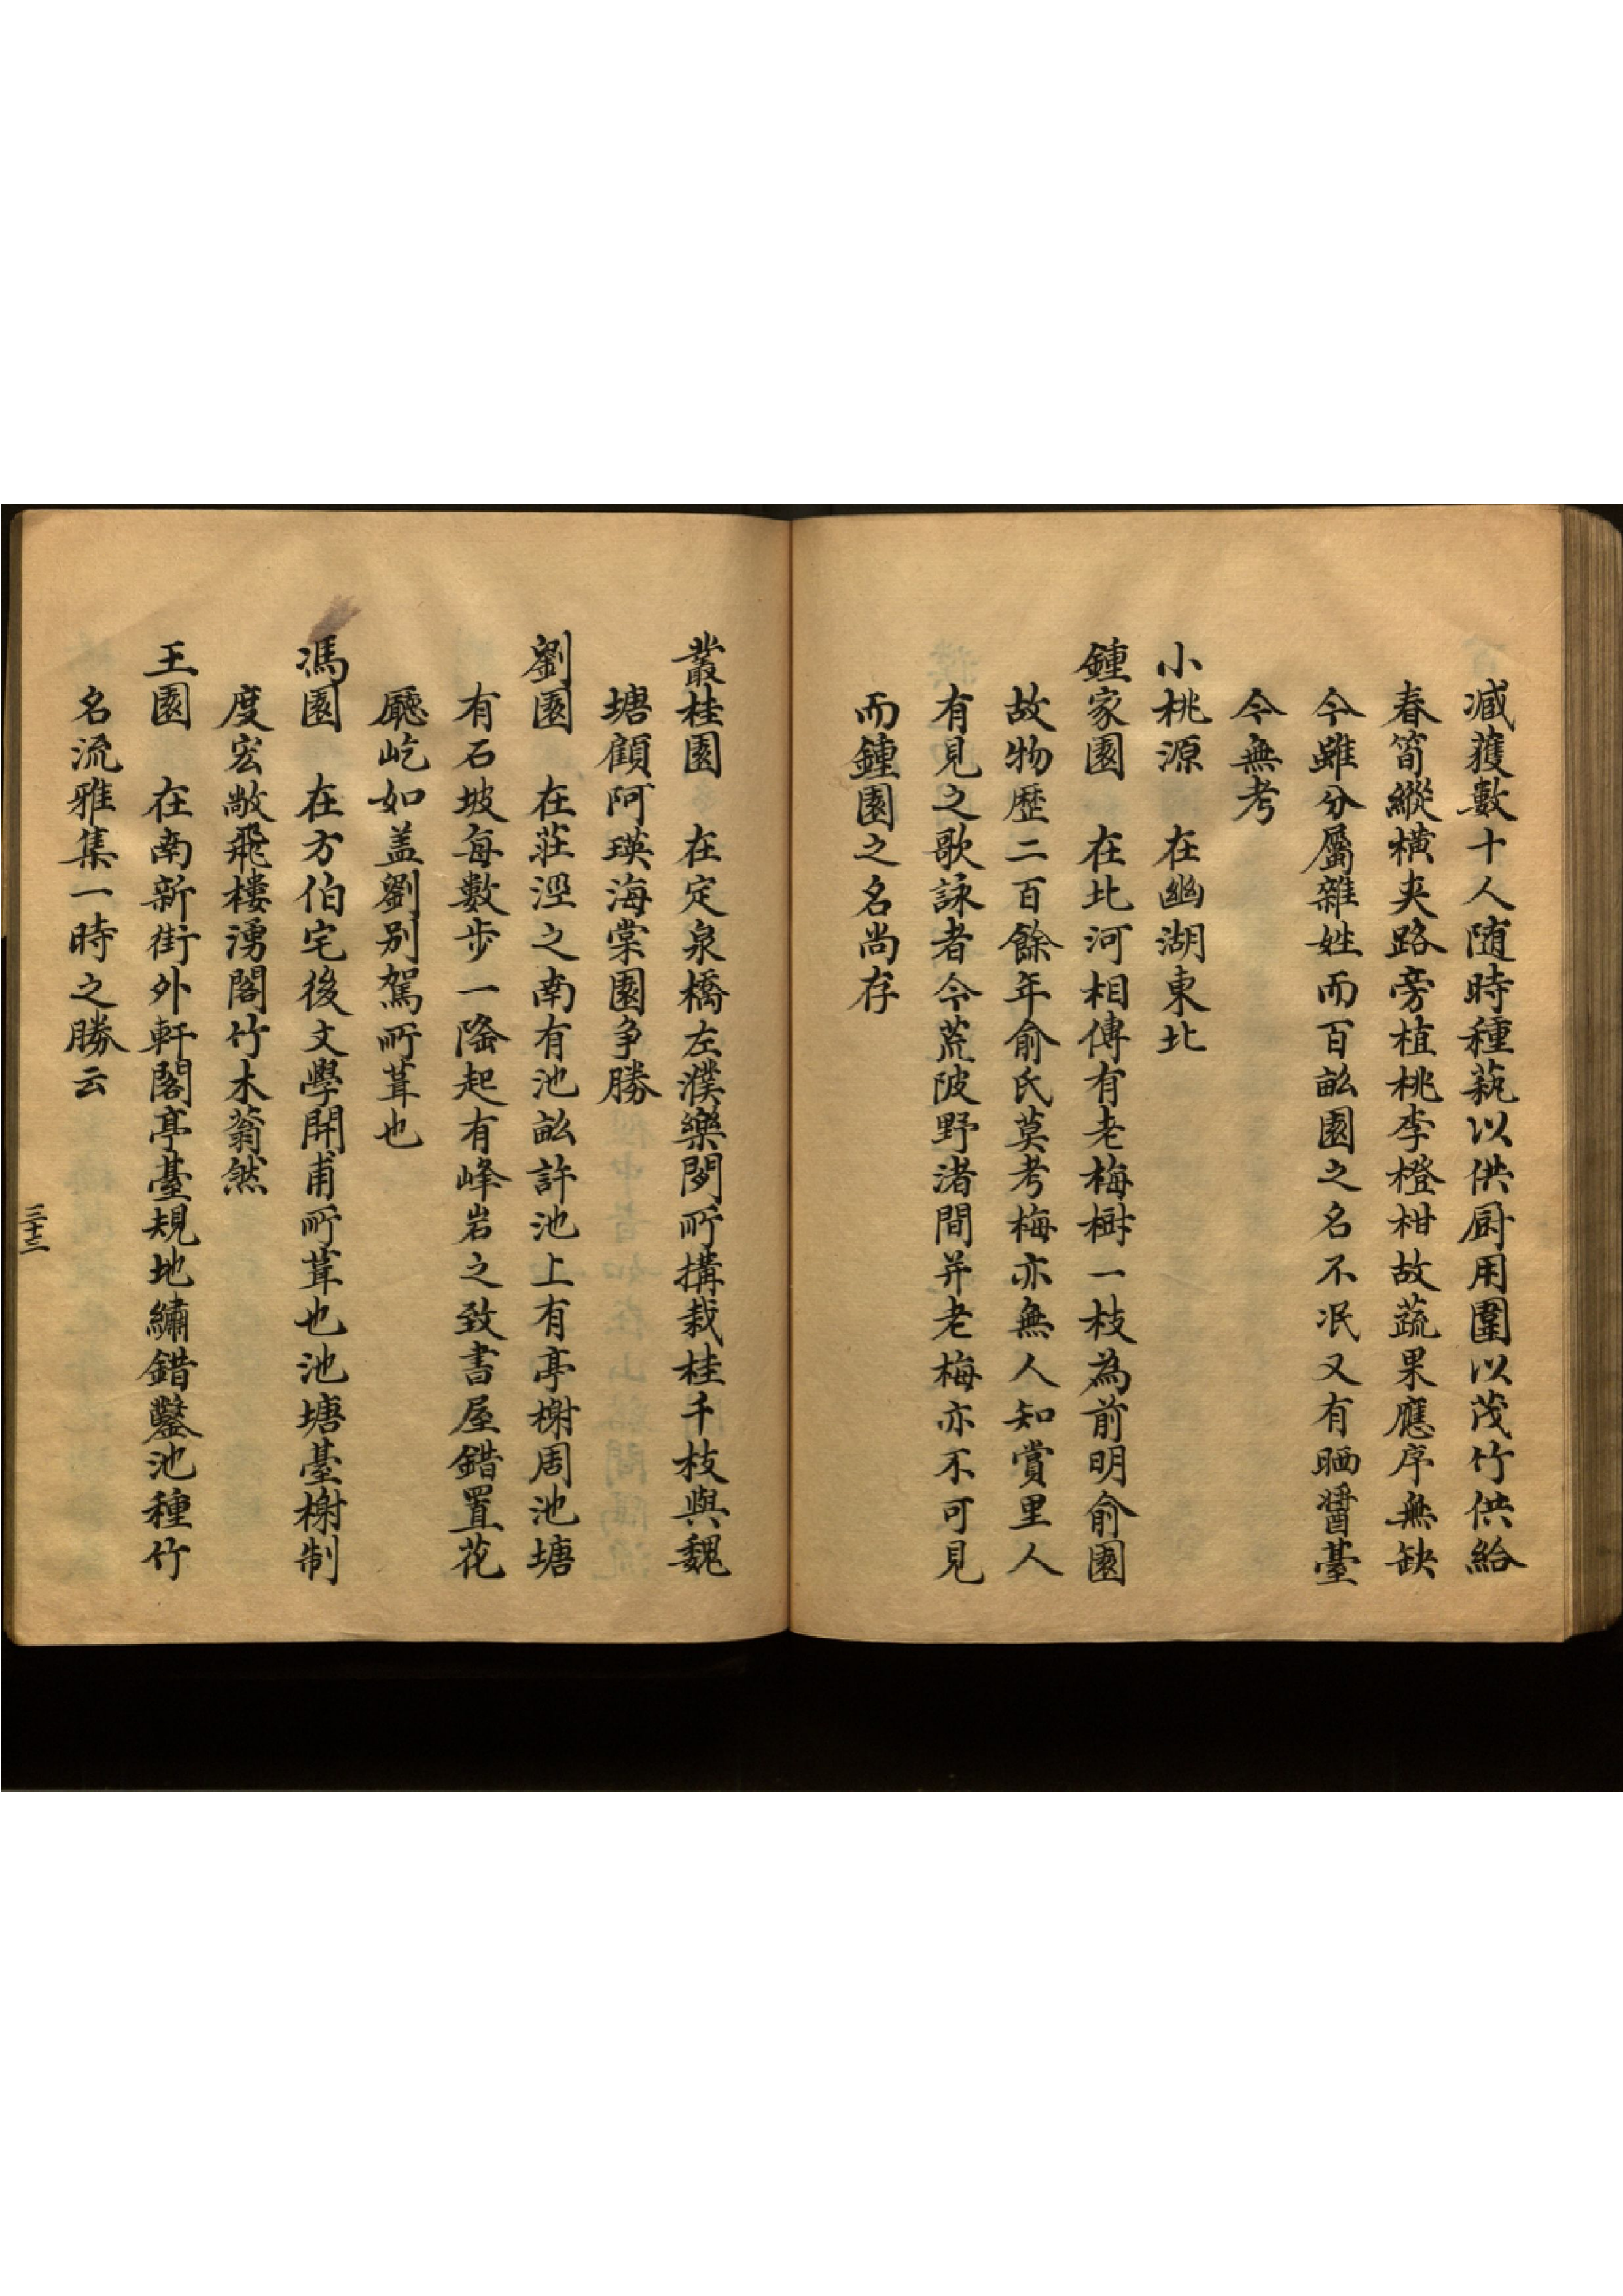 减獲數十人随時種蓺以供厨用圍以茂竹供給
春笥縱橫夹路旁植桃李橙柑故蔬果應序無缺
今雖分屬雜姓而百畝園之名不泯又有晒醬臺
今無考
小桃源　在幽湖東北
鍾家園　在北河相傳有老梅樹一枝為前明俞園
故物歷二百餘年俞氏莫考梅亦無人知賞里人
有見之歌詠者今荒陂野渚間并老梅亦不可見
而鍾園之名尚存
叢桂園　在定泉橋左濮樂閒所搆栽桂千枝與魏
塘顧阿瑛海棠園争勝
劉園　在莊涇之南有池畝許池上有亭榭周池塘
有石坡每數步一隆起有峰岩之致書屋錯置花
廳屹如盖劉别駕所葺也
馮園　在方伯宅後文學開甫所葺也池塘臺榭制
度宏敞飛樓湧閣竹木蓊然
王園　在南新街外軒閣亭臺規地繡錯鑿池種竹
名流雅集一時之勝云
三十三